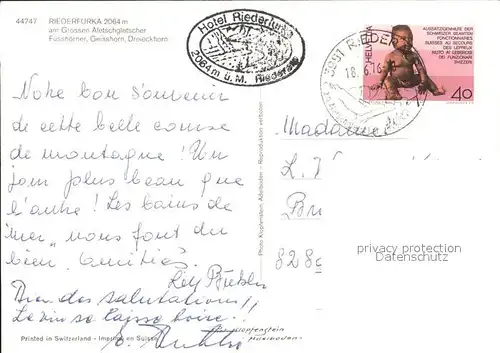 44747 RIEDERFURKA 2064 m
am Grossen Aletschgletscher
Fusshörner, Geisshorn, Dreieckhorn
Hotel Riederfurka
2064 m ü. M. Riederalp
3981 RIEDER
18.
HELVETIA
AUSSÄTZIGENHILFE DER
SCHWEIZER BEAMTEN
FONCTIONNAIRES
SUISSES AU SECOURS
DES LÉPREUX
AIUTO AI LEBBROSI
DEI FUNZIONARI
SVIZZERI
40
Notre bon souvenir
de cette belle course
de montagne! Un
jour plus beau que
l'autre! Les bains de
"mer" nous font du
bien. Amitiés.
Bien des salutations!!
Le vin se laisse boire!
Madame
L.
8280
Photo Klopfenstein, Adelboden - Reproduction verboten
Persönliche Daten
protected personal data
Datenschutz
Printed in Switzerland - Imprimé en Suisse
Klopfenstein